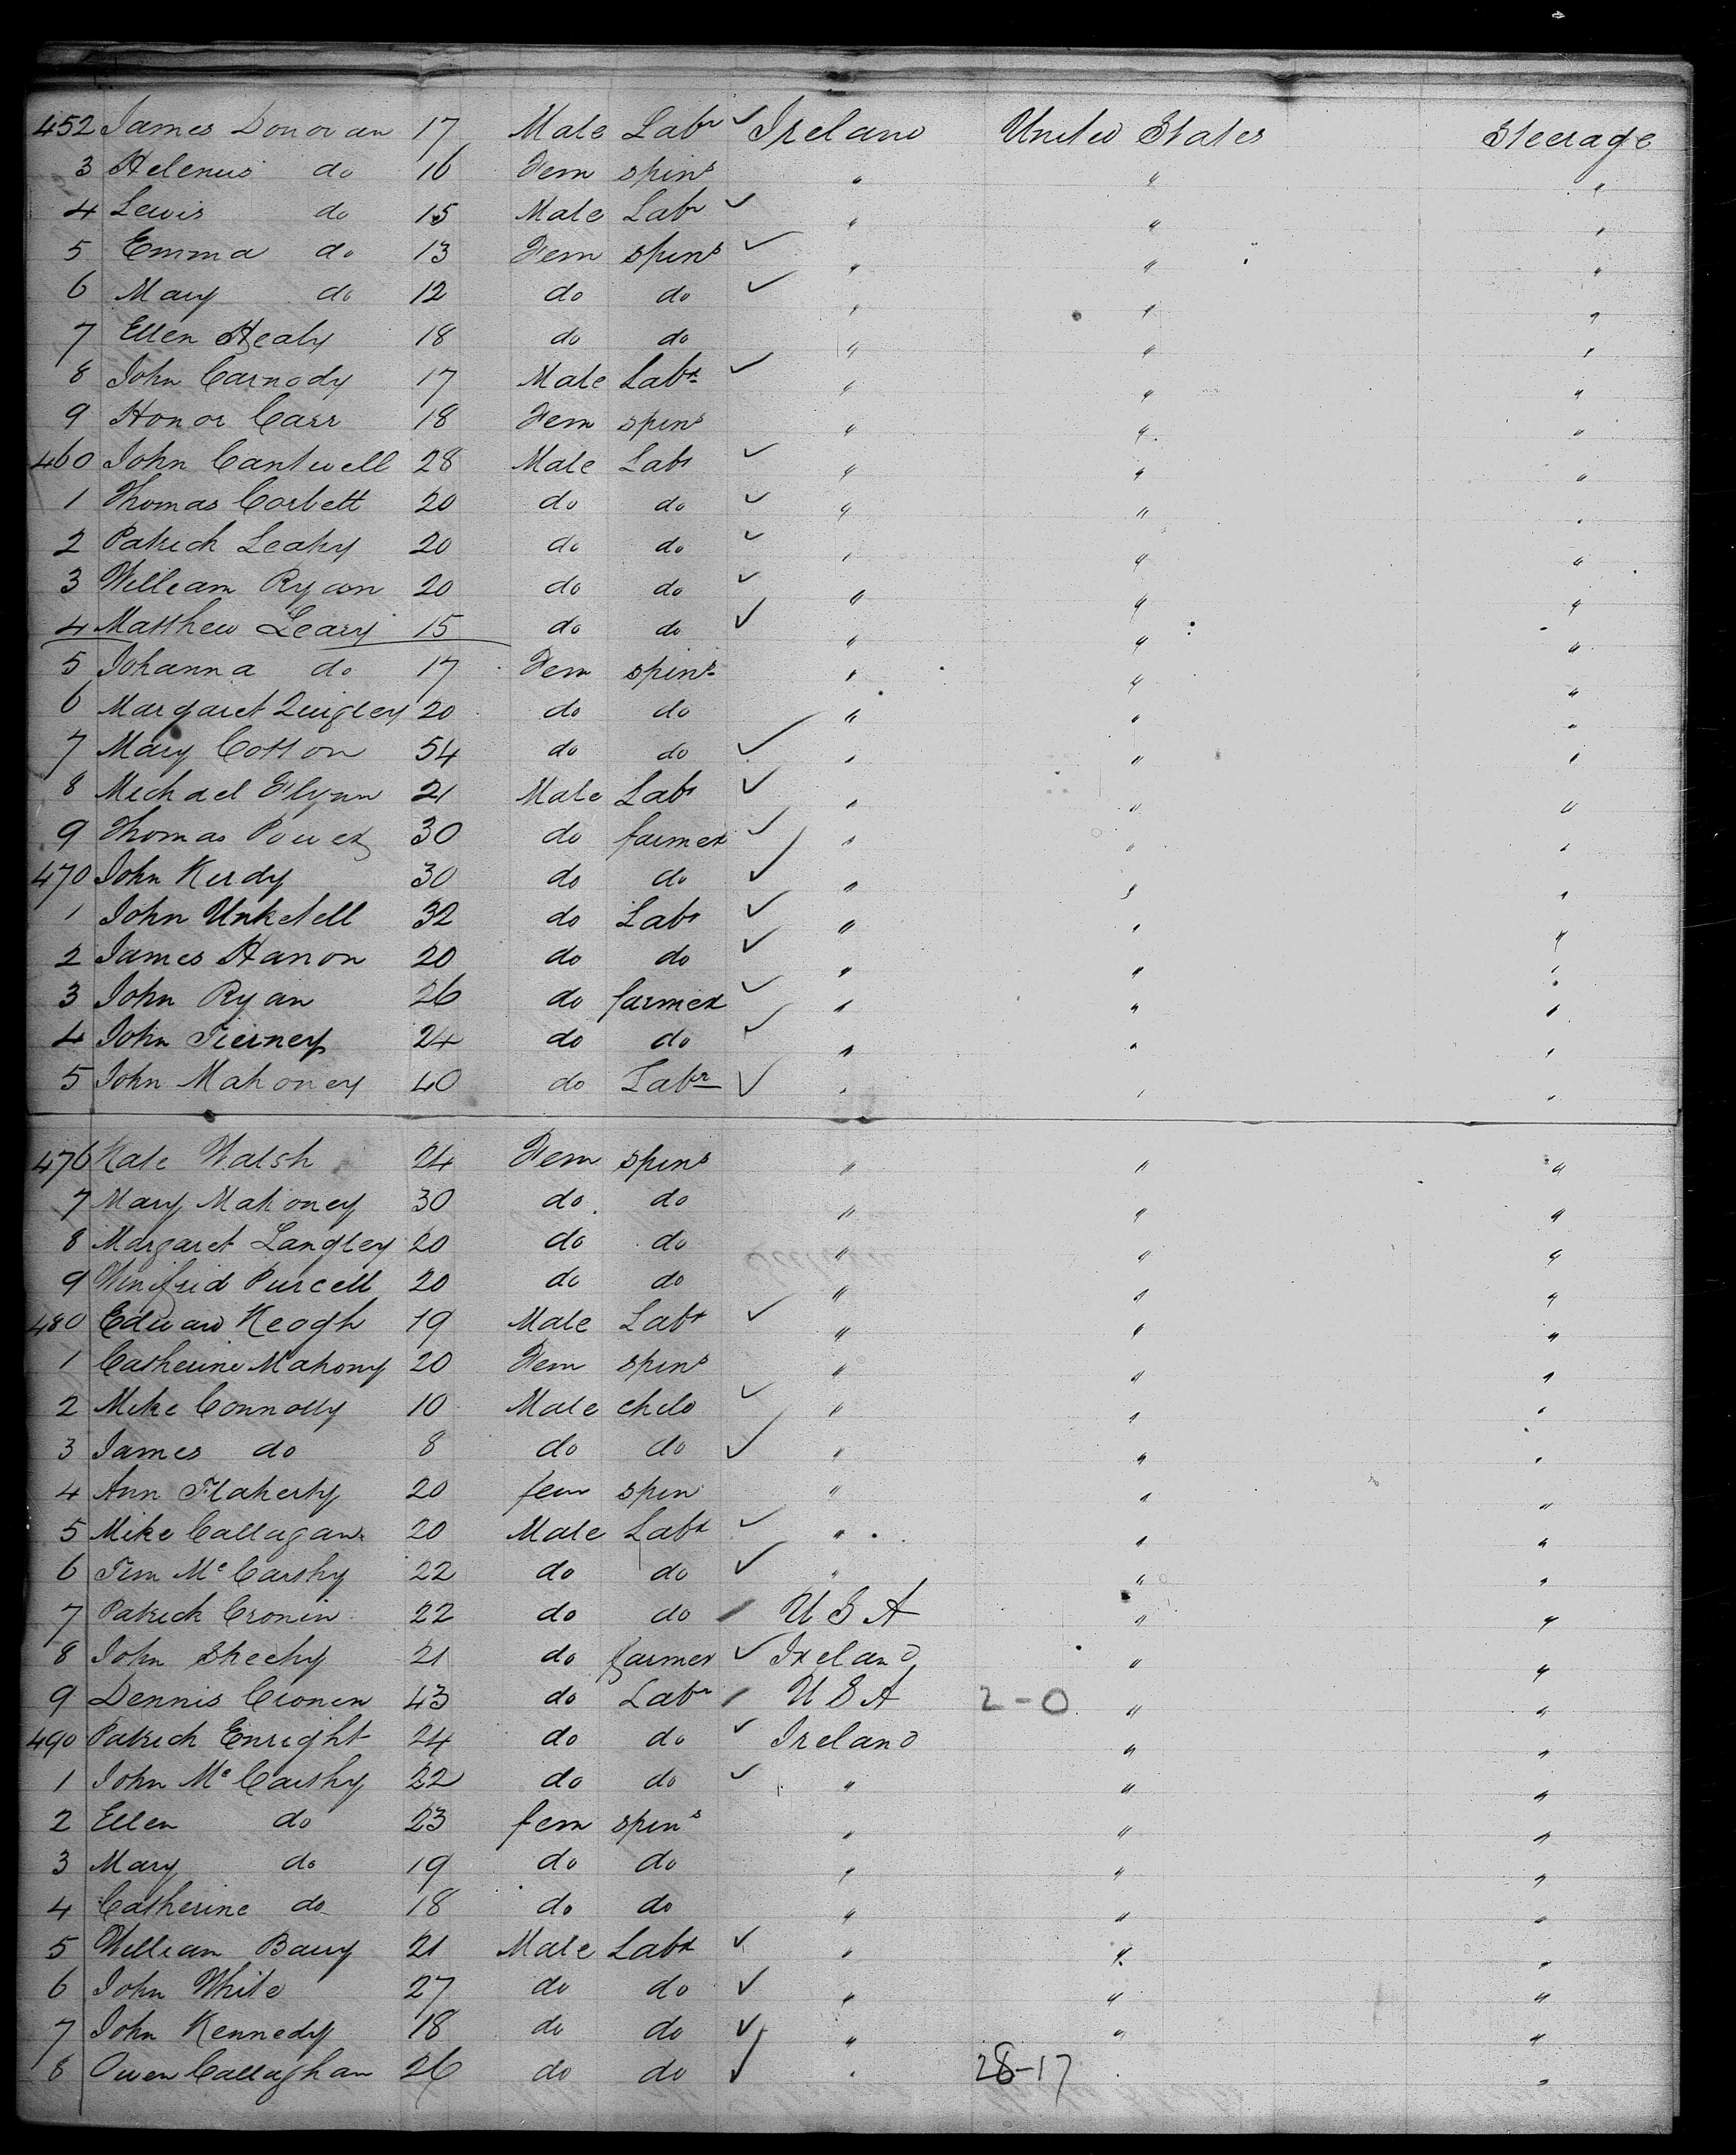 452 James Donovan 17 Male Labr ✓ Ireland United States Steerage
3 Helenus do 16 Fem spins " " "
4 Lewis do 15 Male Labr ✓ " " "
5 Emma do 13 Fem spins ✓ " " "
6 Mary do 12 do do ✓ " " "
7 Ellen Healy 18 do do " " "
8 John Carnody 17 Male Labr ✓ " " "
9 Honor Carr 18 Fem spins " " "
460 John Cantwell 28 Male Labr ✓ " " "
1 Thomas Corbett 20 do do ✓ " " "
2 Patrick Leahy 20 do do ✓ " " "
3 William Ryan 20 do do ✓ " " "
4 Matthew Leary 15 do do ✓ " " "
5 Johanna do 17 Fem spins " " "
6 Margaret Quigley 20 do do " " "
7 Mary Cotton 54 do do ✓ " " "
8 Michael Flynn 21 Male Labr ✓ " " "
9 Thomas Power 30 do farmer ✓ " " "
470 John Kirdy 30 do do ✓ " " "
1 John Unketell 32 do Labr ✓ " " "
2 James Hanon 20 do do ✓ " " "
3 John Ryan 26 do farmer ✓ " " "
4 John Tierney 24 do do ✓ " " "
5 John Mahoney 40 do Labr ✓ " " "
476 Kate Walsh 24 Fem spins " " "
7 Mary Mahoney 30 do do " " "
8 Margaret Langley 20 do do " " "
9 Winifrid Purcell 20 do do " " "
480 Edward Keogh 19 Male Labr ✓ " " "
1 Catherine Mahony 20 Fem spins " " "
2 Mike Connolly 10 Male child ✓ " " "
3 James do 8 do do ✓ " " "
4 Ann Flaherty 20 fem spin " " "
5 Mike Callagan 20 Male Labr ✓ " " "
6 Tim McCarthy 22 do do ✓ " " "
7 Patrick Cronin 22 do do / U S A " "
8 John Sheehy 21 do farmer ✓ Ireland " "
9 Dennis Cronen 43 do Labr / U S A 2-0 " "
490 Patrick Enright 24 do do ✓ Ireland " "
1 John McCarthy 22 do do ✓ " " "
2 Ellen do 23 fem spins " " "
3 Mary do 19 do do " " "
4 Catherine do 18 do do " " "
5 William Barry 21 Male Labr ✓ " " "
6 John White 27 do do ✓ " " "
7 John Kennedy 18 do do ✓ " " "
8 Owen Callaghan 26 do do ✓ " 28-17 "